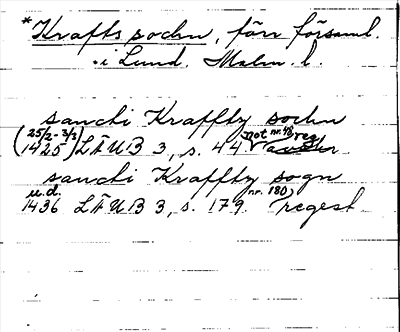 *Krafts socken, förr församl.
i Lund. Malm. l.
sancti Kraffty sockn
(25/2-3/3 1425) LÄUB 3, s. 44 not nr. 48 reg
sancti Kraffty sogn
u.d. 1436 LÄUB 3, s. 179. nr. 180, regest